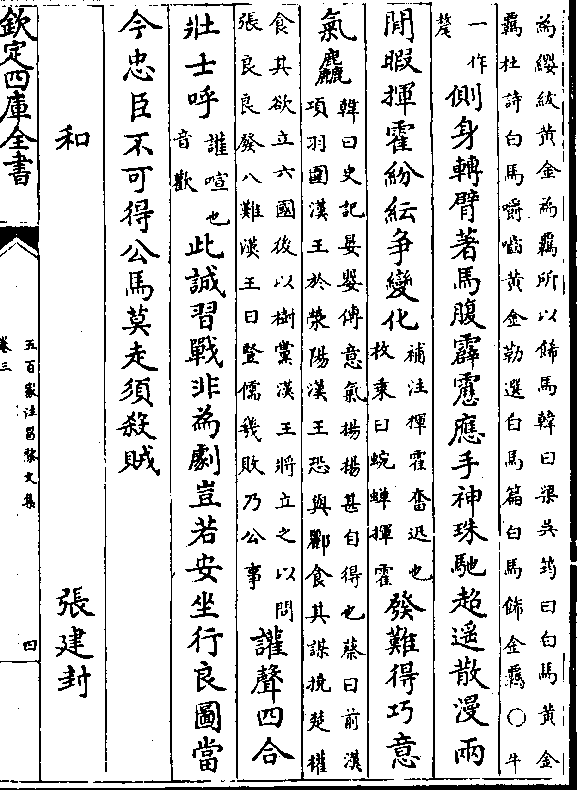 為纓紱黃金為羈所以飾馬韓曰梁吳筠曰白馬黃金
羈杜詩白馬嚼齧黃金勒選白馬篇白馬飾金羈〇牛
一作
氂
側身轉臂著馬腹霹靂應手神珠馳超遥散漫兩
閒暇揮霍紛紜争變化
補注揮霍奮迅也
枚乘曰蜿蟬揮霍
發難得巧意
氣麤
韓曰史記晏嬰傳意氣揚揚甚自得也蔡曰前漢
項羽圍漢王於滎陽漢王恐與酈食其謀撓楚權
食其欲立六國後以樹黨漢王將立之以問
張良良發八難漢王曰豎儒幾敗乃公事
讙聲四合
壯士呼
讙喧也
音歡
此誠習戰非為劇豈若安坐行良圖當
今忠臣不可得公馬莫走須殺賊
和 張建封
欽定四庫全書
五百家注昌黎文集
卷三
四